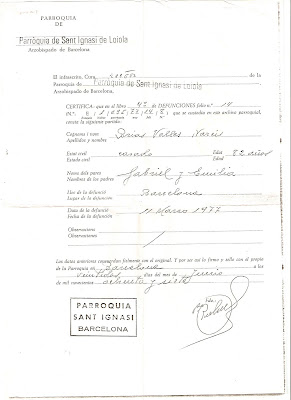 PARROQUIA
DE
Parròquia de Sant Ignasi de Loiola
Arzobispado de Barcelona
El infrascrito, Cura de la
Parroquia de Parròquia de Sant Ignasi de Loiola
Arzobispado de Barcelona.
CERTIFICA: que en el libro 43 de DEFUNCIONES folio n.º 14
N.º que se custodia en este archivo parroquial,
consta la siguiente partida:
Cognoms i nom
Apellidos y nombre Valles
Estat civil casado Edat 82 años
Estado civil Edad
Noms dels pares Gabriel y Emilia
Nombres de los padres
Lloc de la defunció Barcelona
Lugar de la defunción
Data de la defunció 11 Marzo 1977
Fecha de la defunción
Observacions
Observaciones
Los datos anteriores concuerdan fielmente con el original. Y por ser así lo firmo y sello con el propio
de la Parroquia en Barcelona a los
veintidos días del mes de Junio
de mil novecientos ochenta y siete
PARROQUIA
SANT IGNASI
BARCELONA